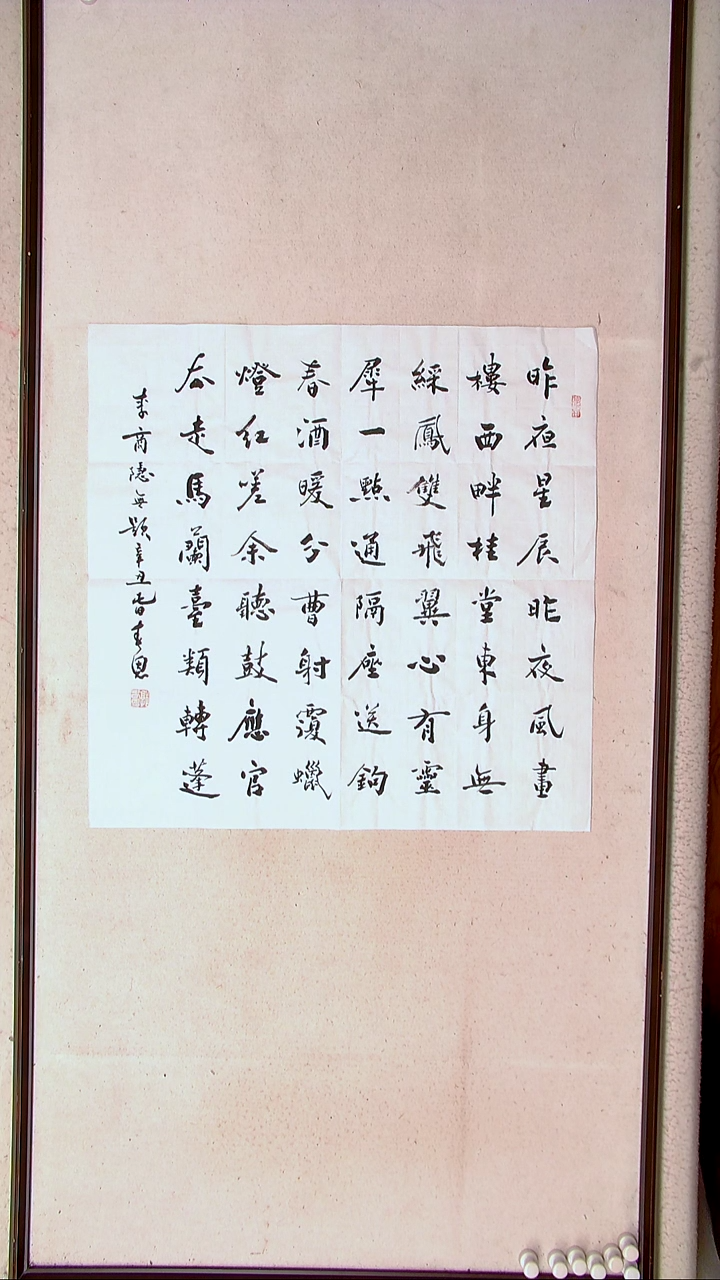 昨夜星辰昨夜風畫
樓西畔桂堂東身無
綵鳳雙飛翼心有靈
犀一點通隔座送鉤
春酒暖分曹射覆蠟
燈紅嗟余聽鼓應官
去走馬蘭臺類轉蓬
李商隱無題辛丑